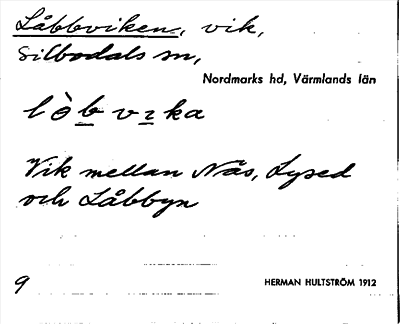 Låbbviken, vik,
Silbodals sn,
Nordmarks hd, Värmlands län
lòb vɪka
Vik mellan Näs, Lysed
och Låbbyn
9
HERMAN HULTSTRÖM 1912